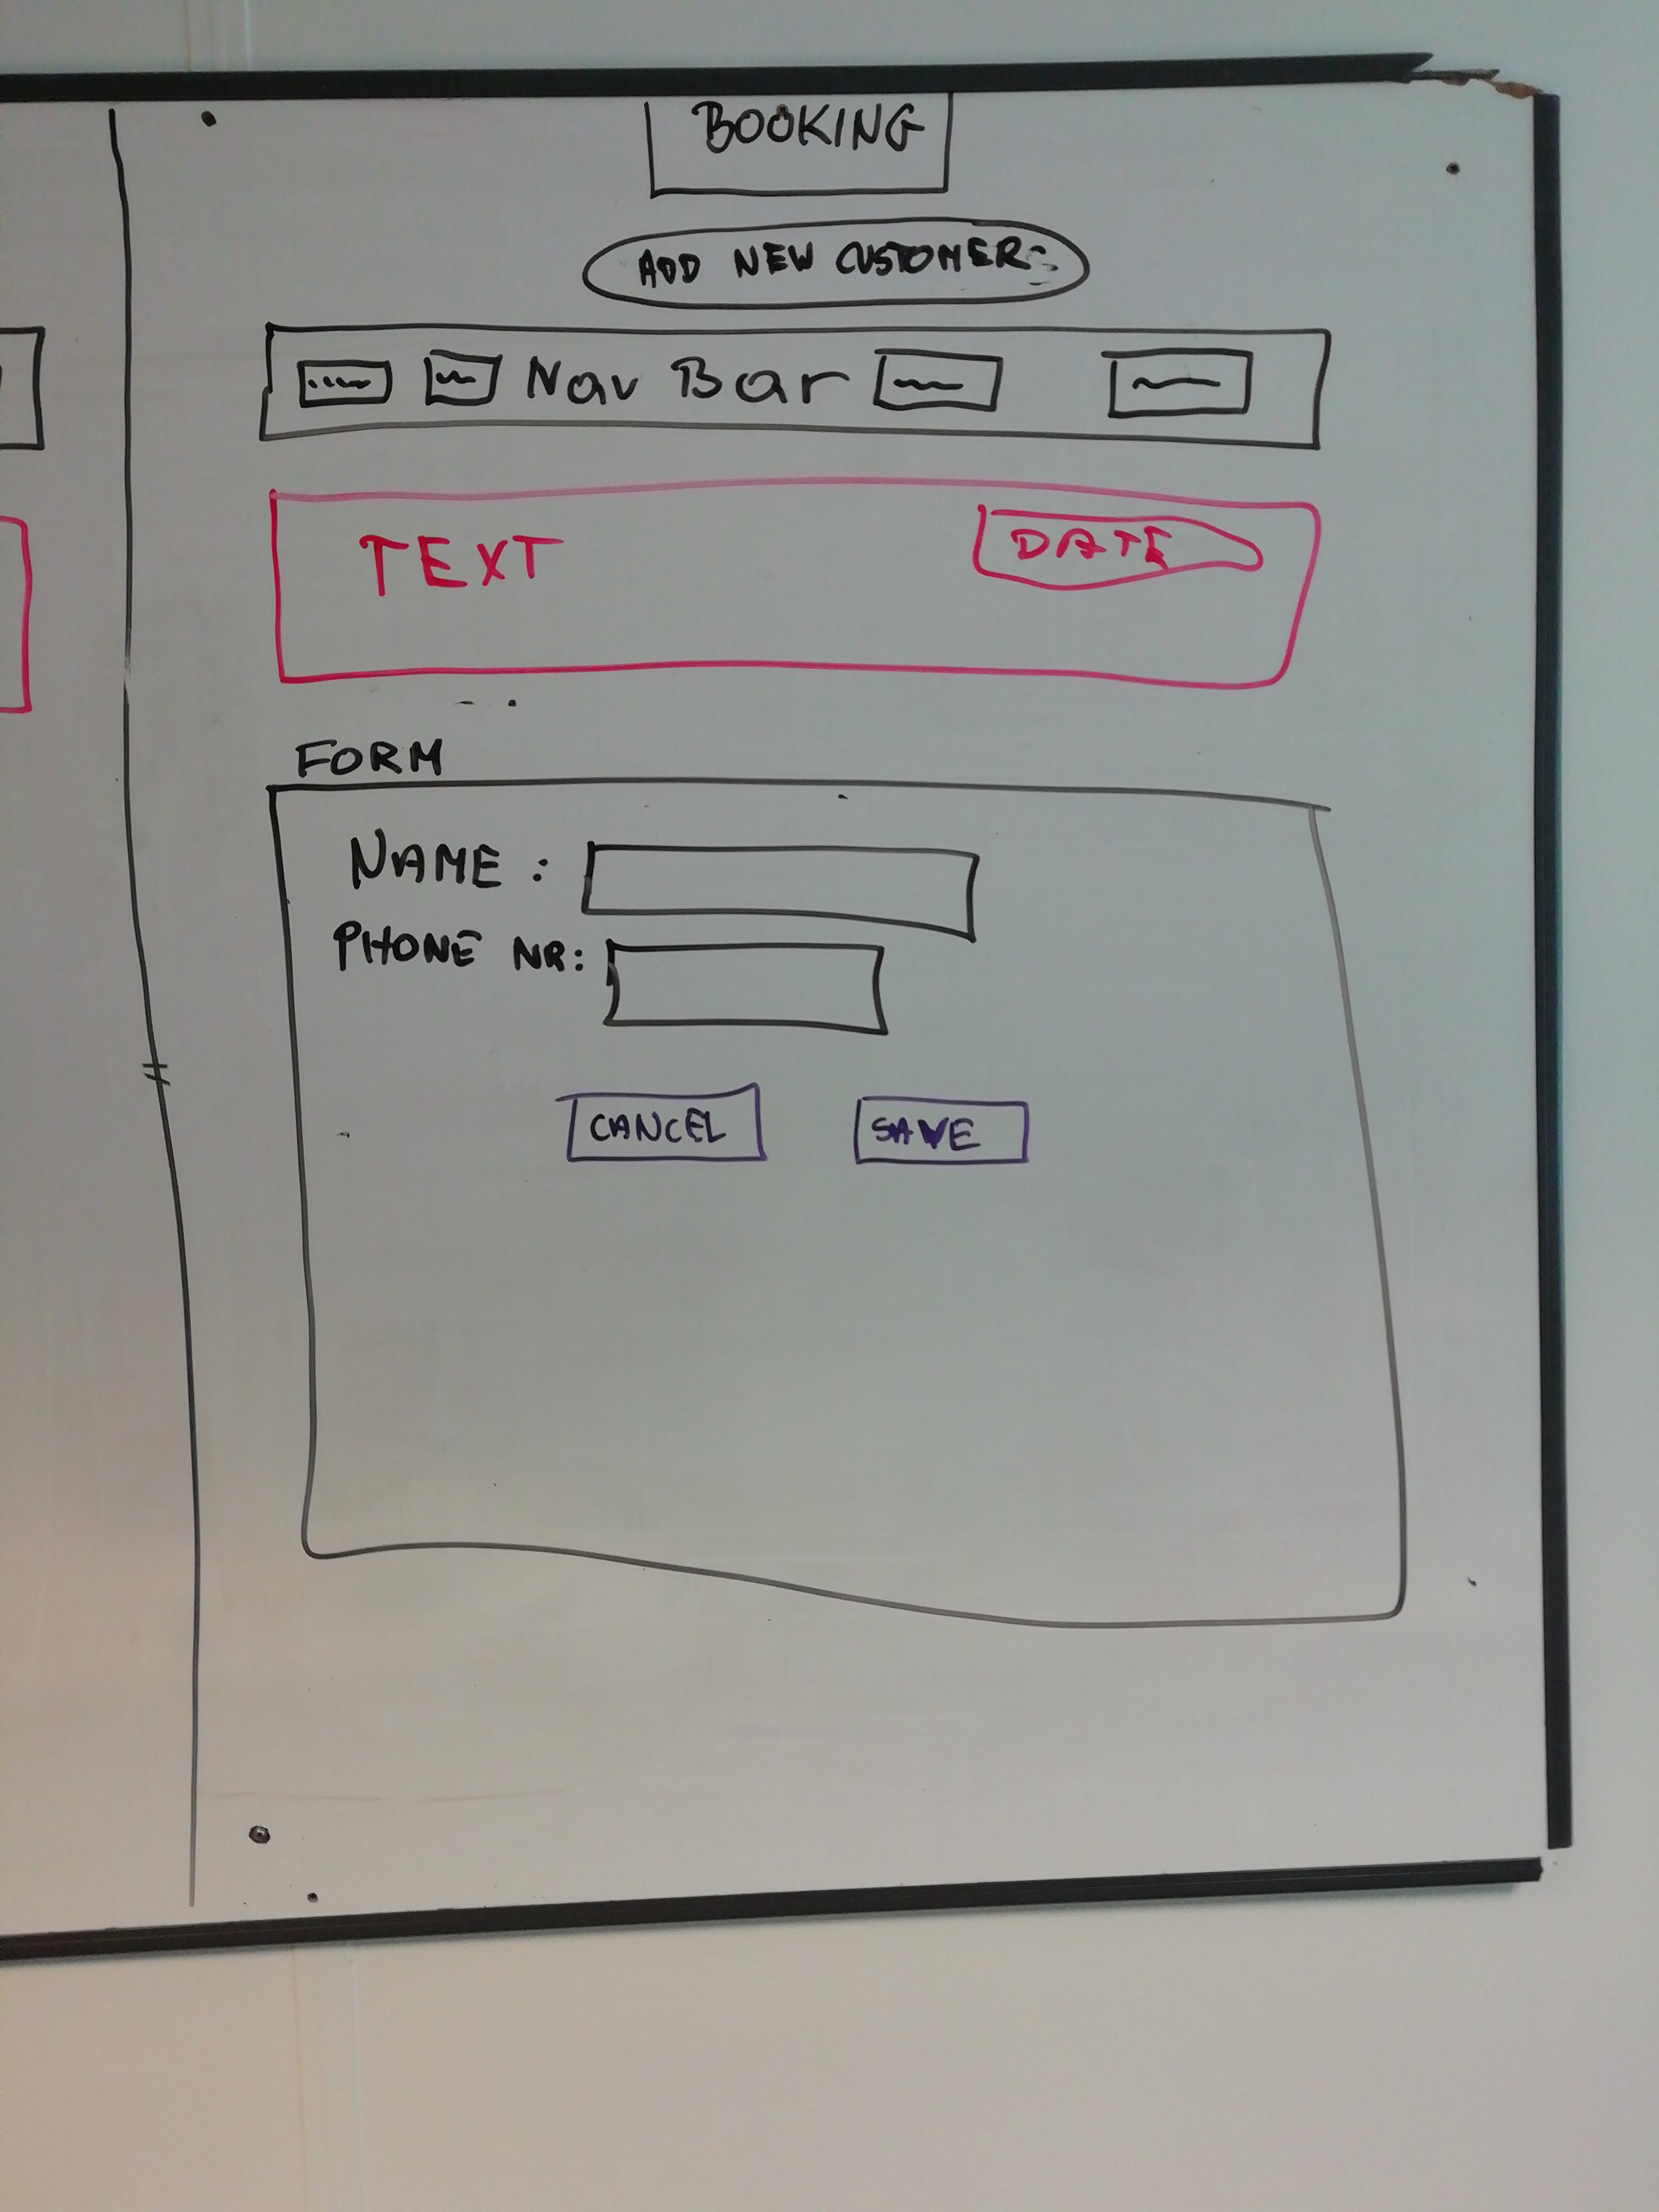 BOOKING
ADD NEW CUSTOMER:
Nav Bar
TEXT DATE
FORM
NAME :
PHONE NR:
CANCEL SAVE